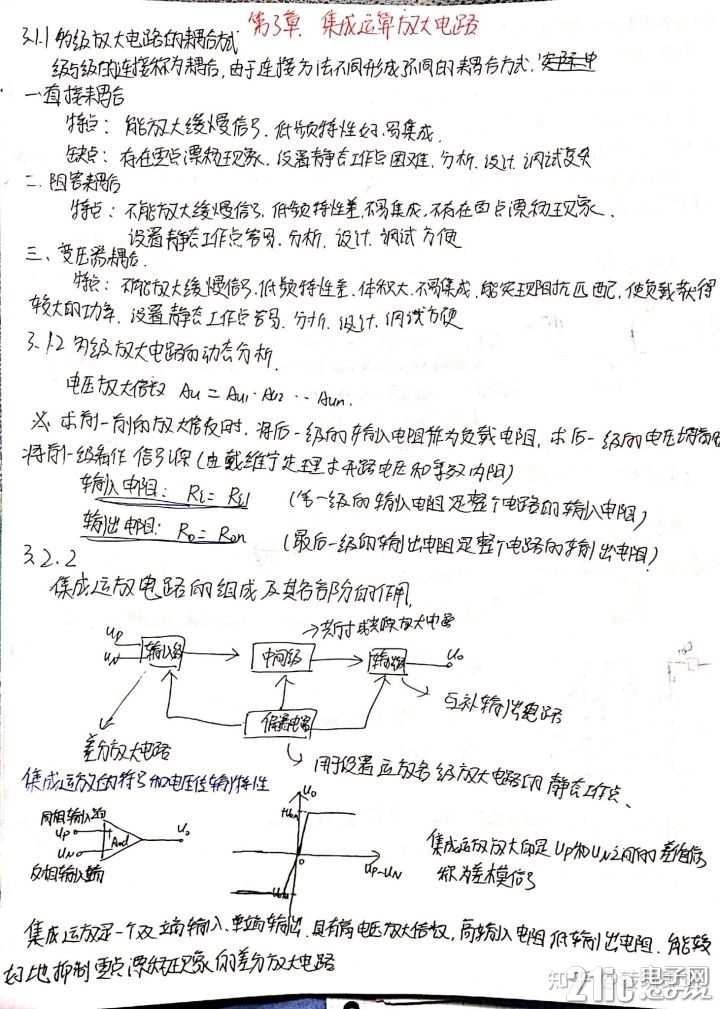 第3章 集成运算放大电路
3.1.1 多级放大电路的耦合方式
级与级的连接称为耦合,由于连接方法不同形成不同的耦合方式.
一.直接耦合
特点: 能放大缓慢信号,低频特性好.易集成.
缺点: 存在零点漂移现象,设置静态工作点困难.分析.设计.调试复杂
二.阻容耦合
特点: 不能放大缓慢信号,低频特性差,不易集成,不存在零点漂移现象.
设置静态工作点容易.分析.设计.调试方便
三、变压器耦合.
特点: 不能放大缓慢信号.低频特性差.体积大.不易集成.能实现阻抗匹配,使负载获得
较大的功率.设置静态工作点容易.分析.设计.调试方便
3.1.2 多级放大电路的动态分析.
电压放大倍数 Au = Au1·Au2 ··· Aun.
※ 求前一级的放大倍数时,将后一级的输入电阻作为负载电阻,求后一级的电压增益时
将前一级看作信号源(由戴维宁定理求开路电压和等效内阻)
输入电阻: Ri = Ri1 (第一级的输入电阻是整个电路的输入电阻)
输出电阻: Ro = Ron (最后一级的输出电阻是整个电路的输出电阻)
3.2.2
集成运放电路的组成及其各部分的作用.
→共射或共源放大电路
uP
uN 输入级 中间级 输出级 uo
互补输出电路
偏置电路
差分放大电路
用于设置运放各级放大电路的静态工作点.
集成运放的符号和电压传输特性
同相输入端 uP + Aod uo
uN -
反相输入端
uo
+Uom
0
uP-uN
-Uom
集成运放放大的是uP和uN之间的差值信号
称为差模信号
集成运放是一个双端输入、单端输出.具有高电压放大倍数,高输入电阻低输出电阻.能较
好地抑制零点漂移现象的差分放大电路
知乎
21ic电子网
.com